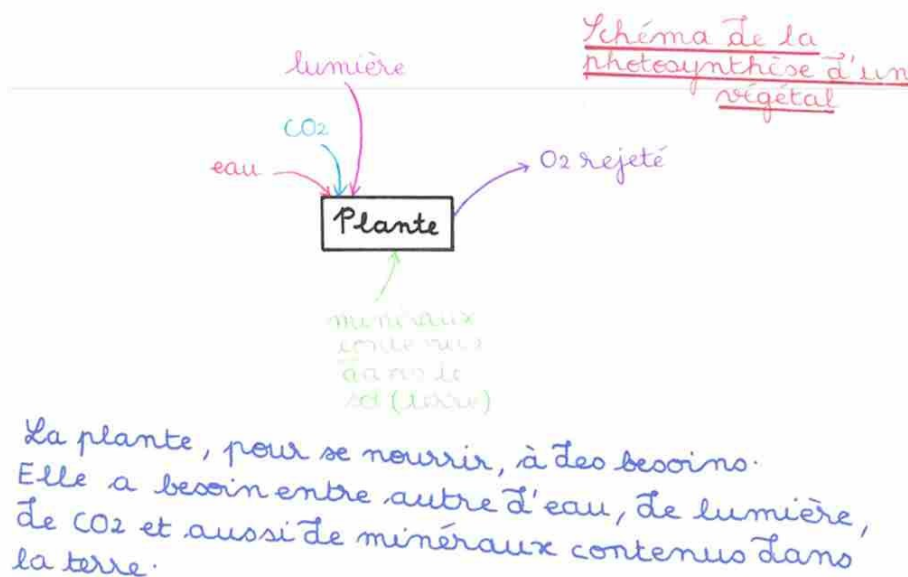 Schéma de la
photosynthèse d'un
végétal
lumière
CO2
eau
O2 rejeté
Plante
minéraux
contenus
dans le
sol (terre)
La plante, pour se nourrir, à des besoins.
Elle a besoin entre autre d'eau, de lumière,
de CO2 et aussi de minéraux contenus dans
la terre.